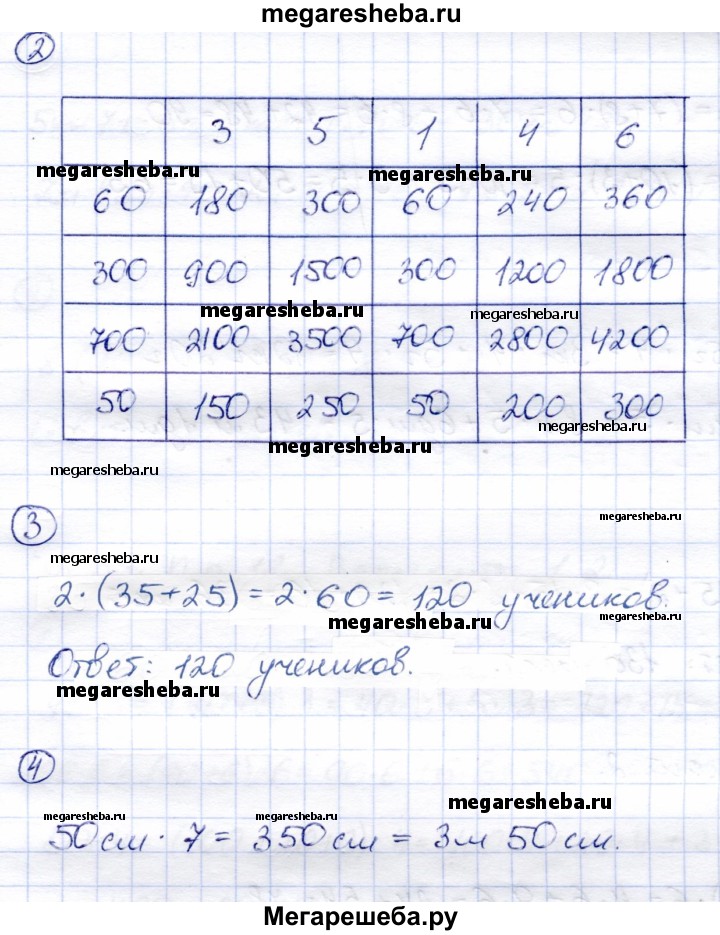 megaresheba.ru
2
3 5 1 4 6
megaresheba.ru megaresheba.ru
60 180 300 60 240 360
300 900 1500 300 1200 1800
megaresheba.ru megaresheba.ru
700 2100 3500 700 2800 4200
50 150 250 50 200 300
megaresheba.ru
megaresheba.ru
megaresheba.ru
3
megaresheba.ru
megaresheba.ru
2·(35+25)=2·60=120 учеников.
megaresheba.ru
Ответ: 120 учеников.
megaresheba.ru
4
megaresheba.ru
megaresheba.ru megaresheba.ru
50см·7=350см=3м 50см.
Мегарешеба.ру